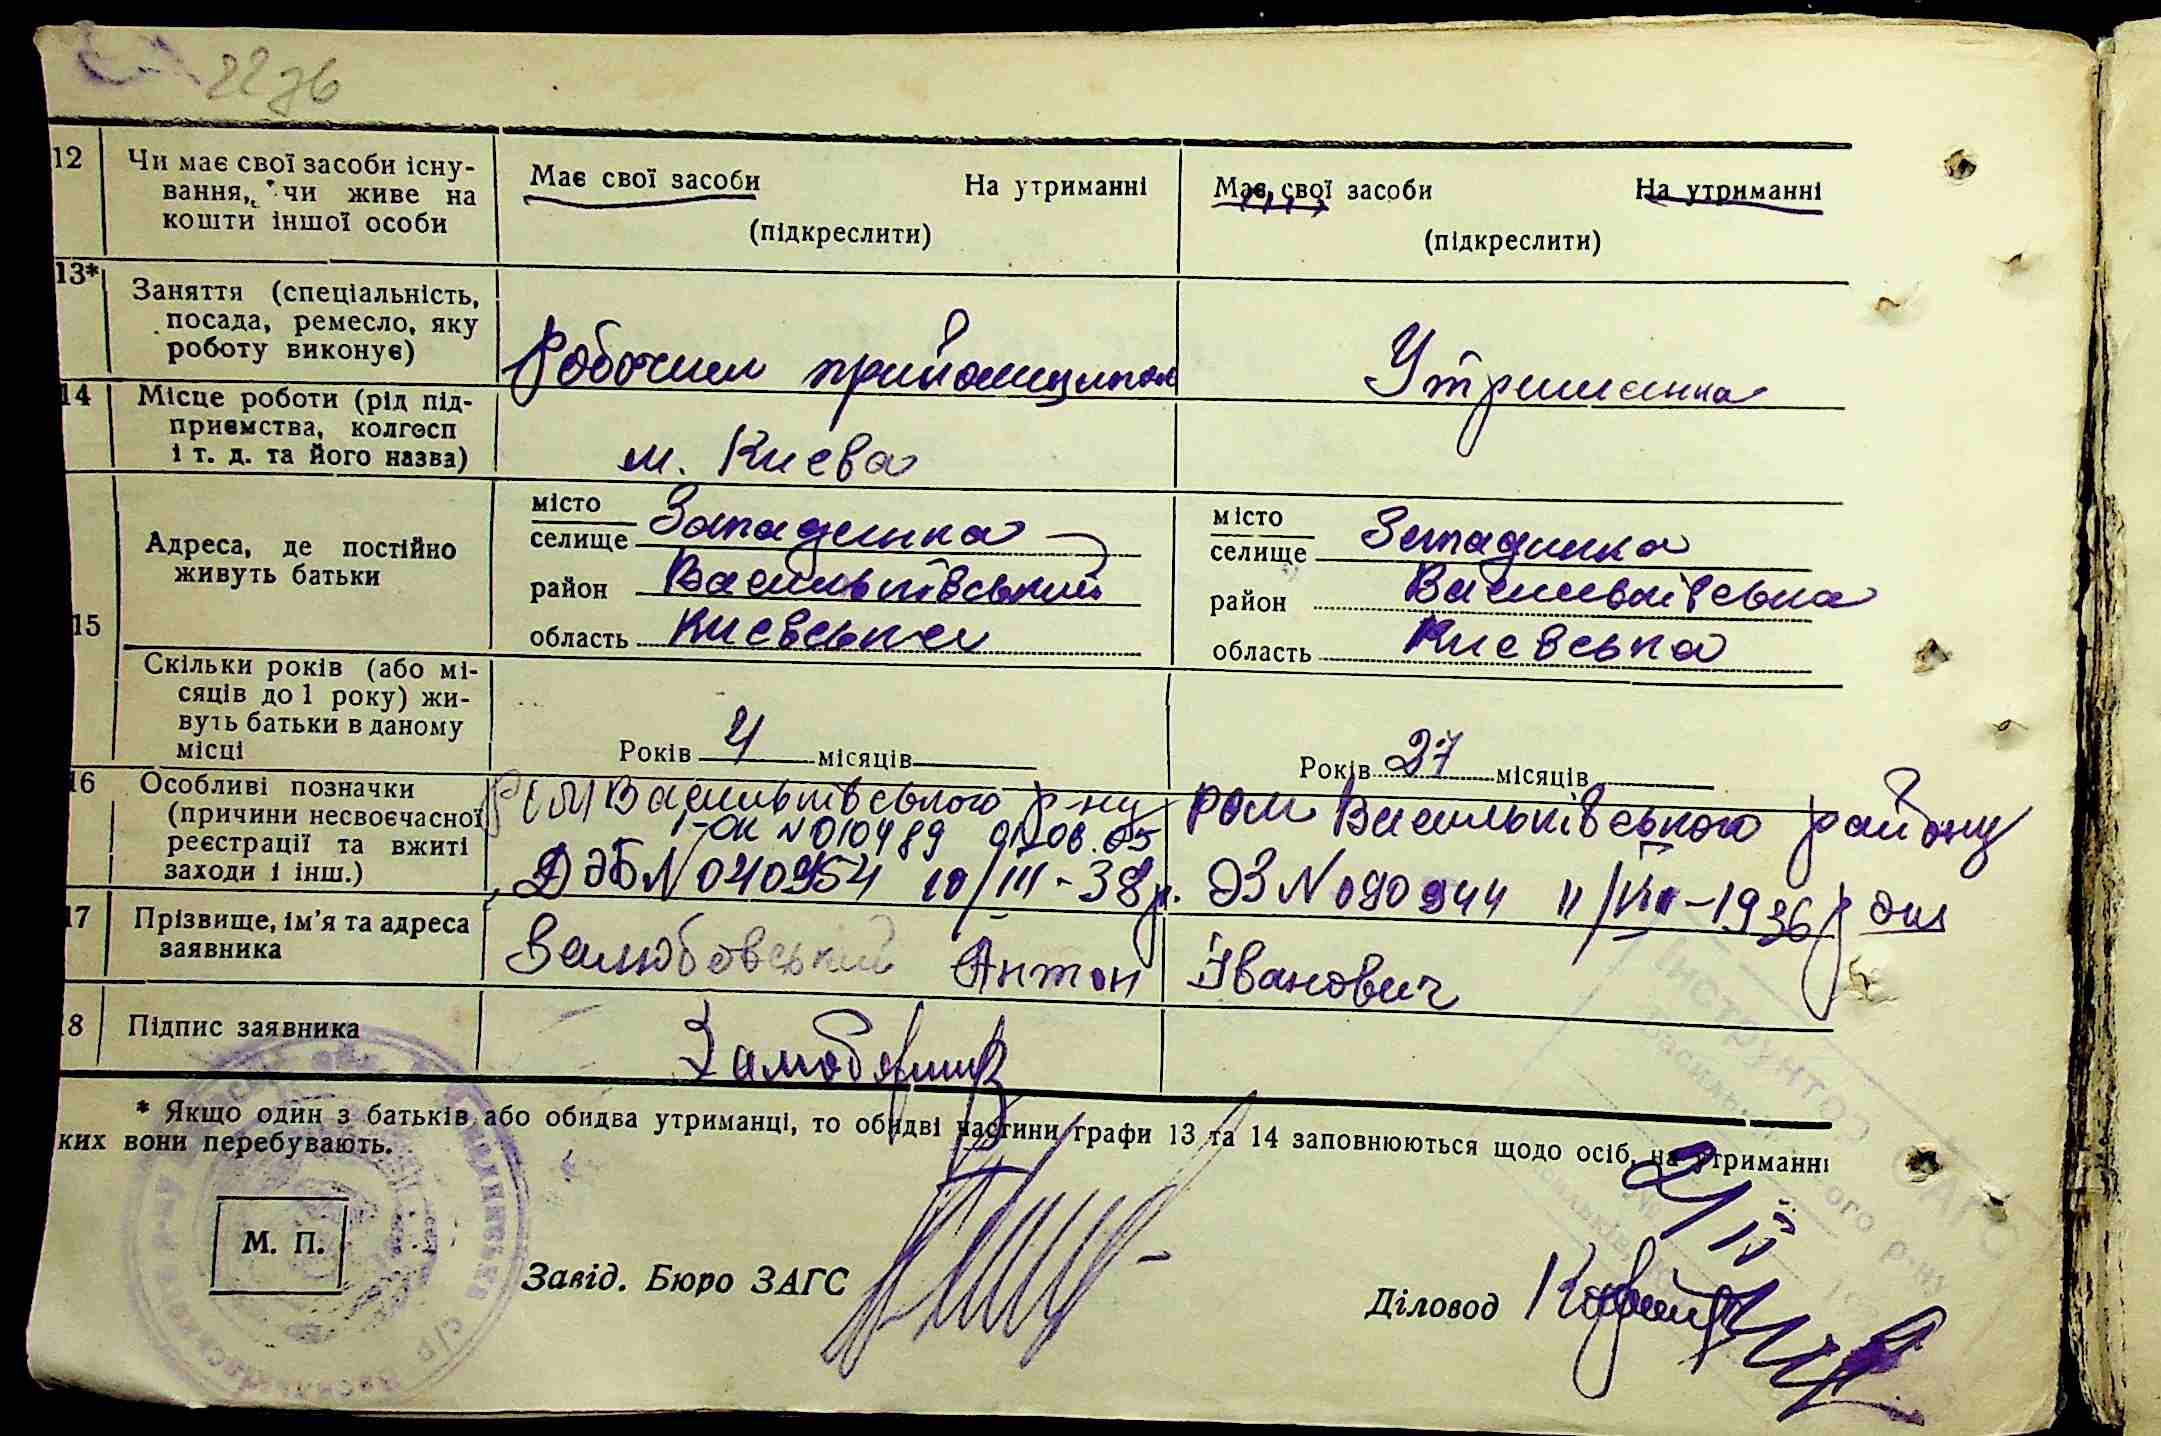 22зв
12 Чи має свої засоби існу-
вання, чи живе на
кошти іншої особи
Має свої засоби На утриманні
(підкреслити)
Має свої засоби На утриманні
(підкреслити)
13* Заняття (спеціальність,
посада, ремесло, яку
роботу виконує)
Робочим
Утриманка
14 Місце роботи (рід під-
приємства, колгосп
і т. д. та його назва)
м. Києва
15 Адреса, де постійно
живуть батьки
місто
селище Западинка
район Васильківський
область Києвська
місто
селище Западинка
район Васильківська
область Києвська
Скільки років (або мі-
сяців до 1 року) жи-
вуть батьки в даному
місці
Років 4 місяців
Років 27 місяців
16 Особливі позначки
(причини несвоєчасної
реєстрації та вжиті
заходи і інш.)
Васильківського р-ну
І-ОК № 010489 01.06.05
№ 040954 10/III-38р.
РСМ Васильківського району
ЭЗ № 090944 11/ -1936р
17 Прізвище, ім’я та адреса
заявника
Залюбовський Антон Іванович
18 Підпис заявника
* Якщо один з батьків або обидва утриманці, то обидві частини графи 13 та 14 заповнюються щодо осіб, на утриманні
ких вони перебувають.
М. П.
Завід. Бюро ЗАГС
Діловод